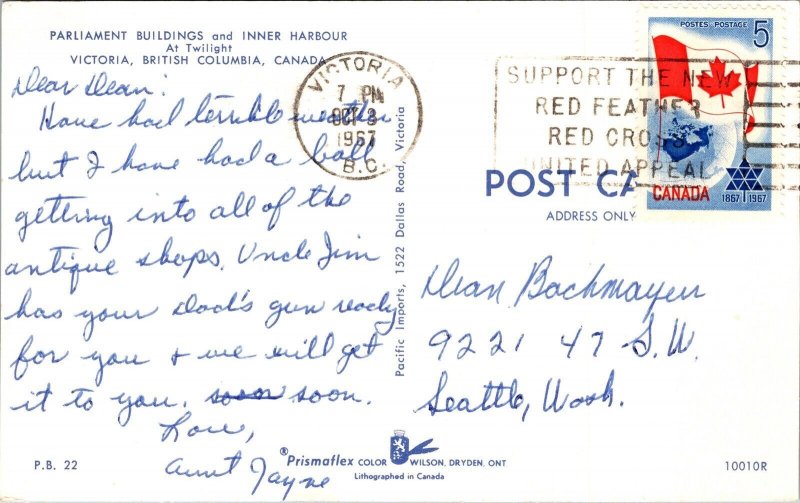 PARLIAMENT BUILDINGS and INNER HARBOUR
At Twilight
VICTORIA, BRITISH COLUMBIA, CANADA
Dear Dean:
Have had terrible weather
but I have had a ball
getting into all of the
antique shops. Uncle Jim
has your Dad's gun ready
for you + we will get
it to you. soon soon.
Love,
Aunt Jayne
P.B. 22
VICTORIA
7 PM
OCT 3
1967
B.C.
SUPPORT THE NEW
RED FEATHER
RED CROSS
UNITED APPEAL
POSTES · POSTAGE 5
CANADA
1867 1967
POST CA
ADDRESS ONLY
Pacific Imports, 1522 Dallas Road, Victoria
Dean Bachmayer
9221 47 S.W.
Seattle, Wash.
®Prismaflex COLOR WILSON, DRYDEN, ONT
Lithographed in Canada
10010R